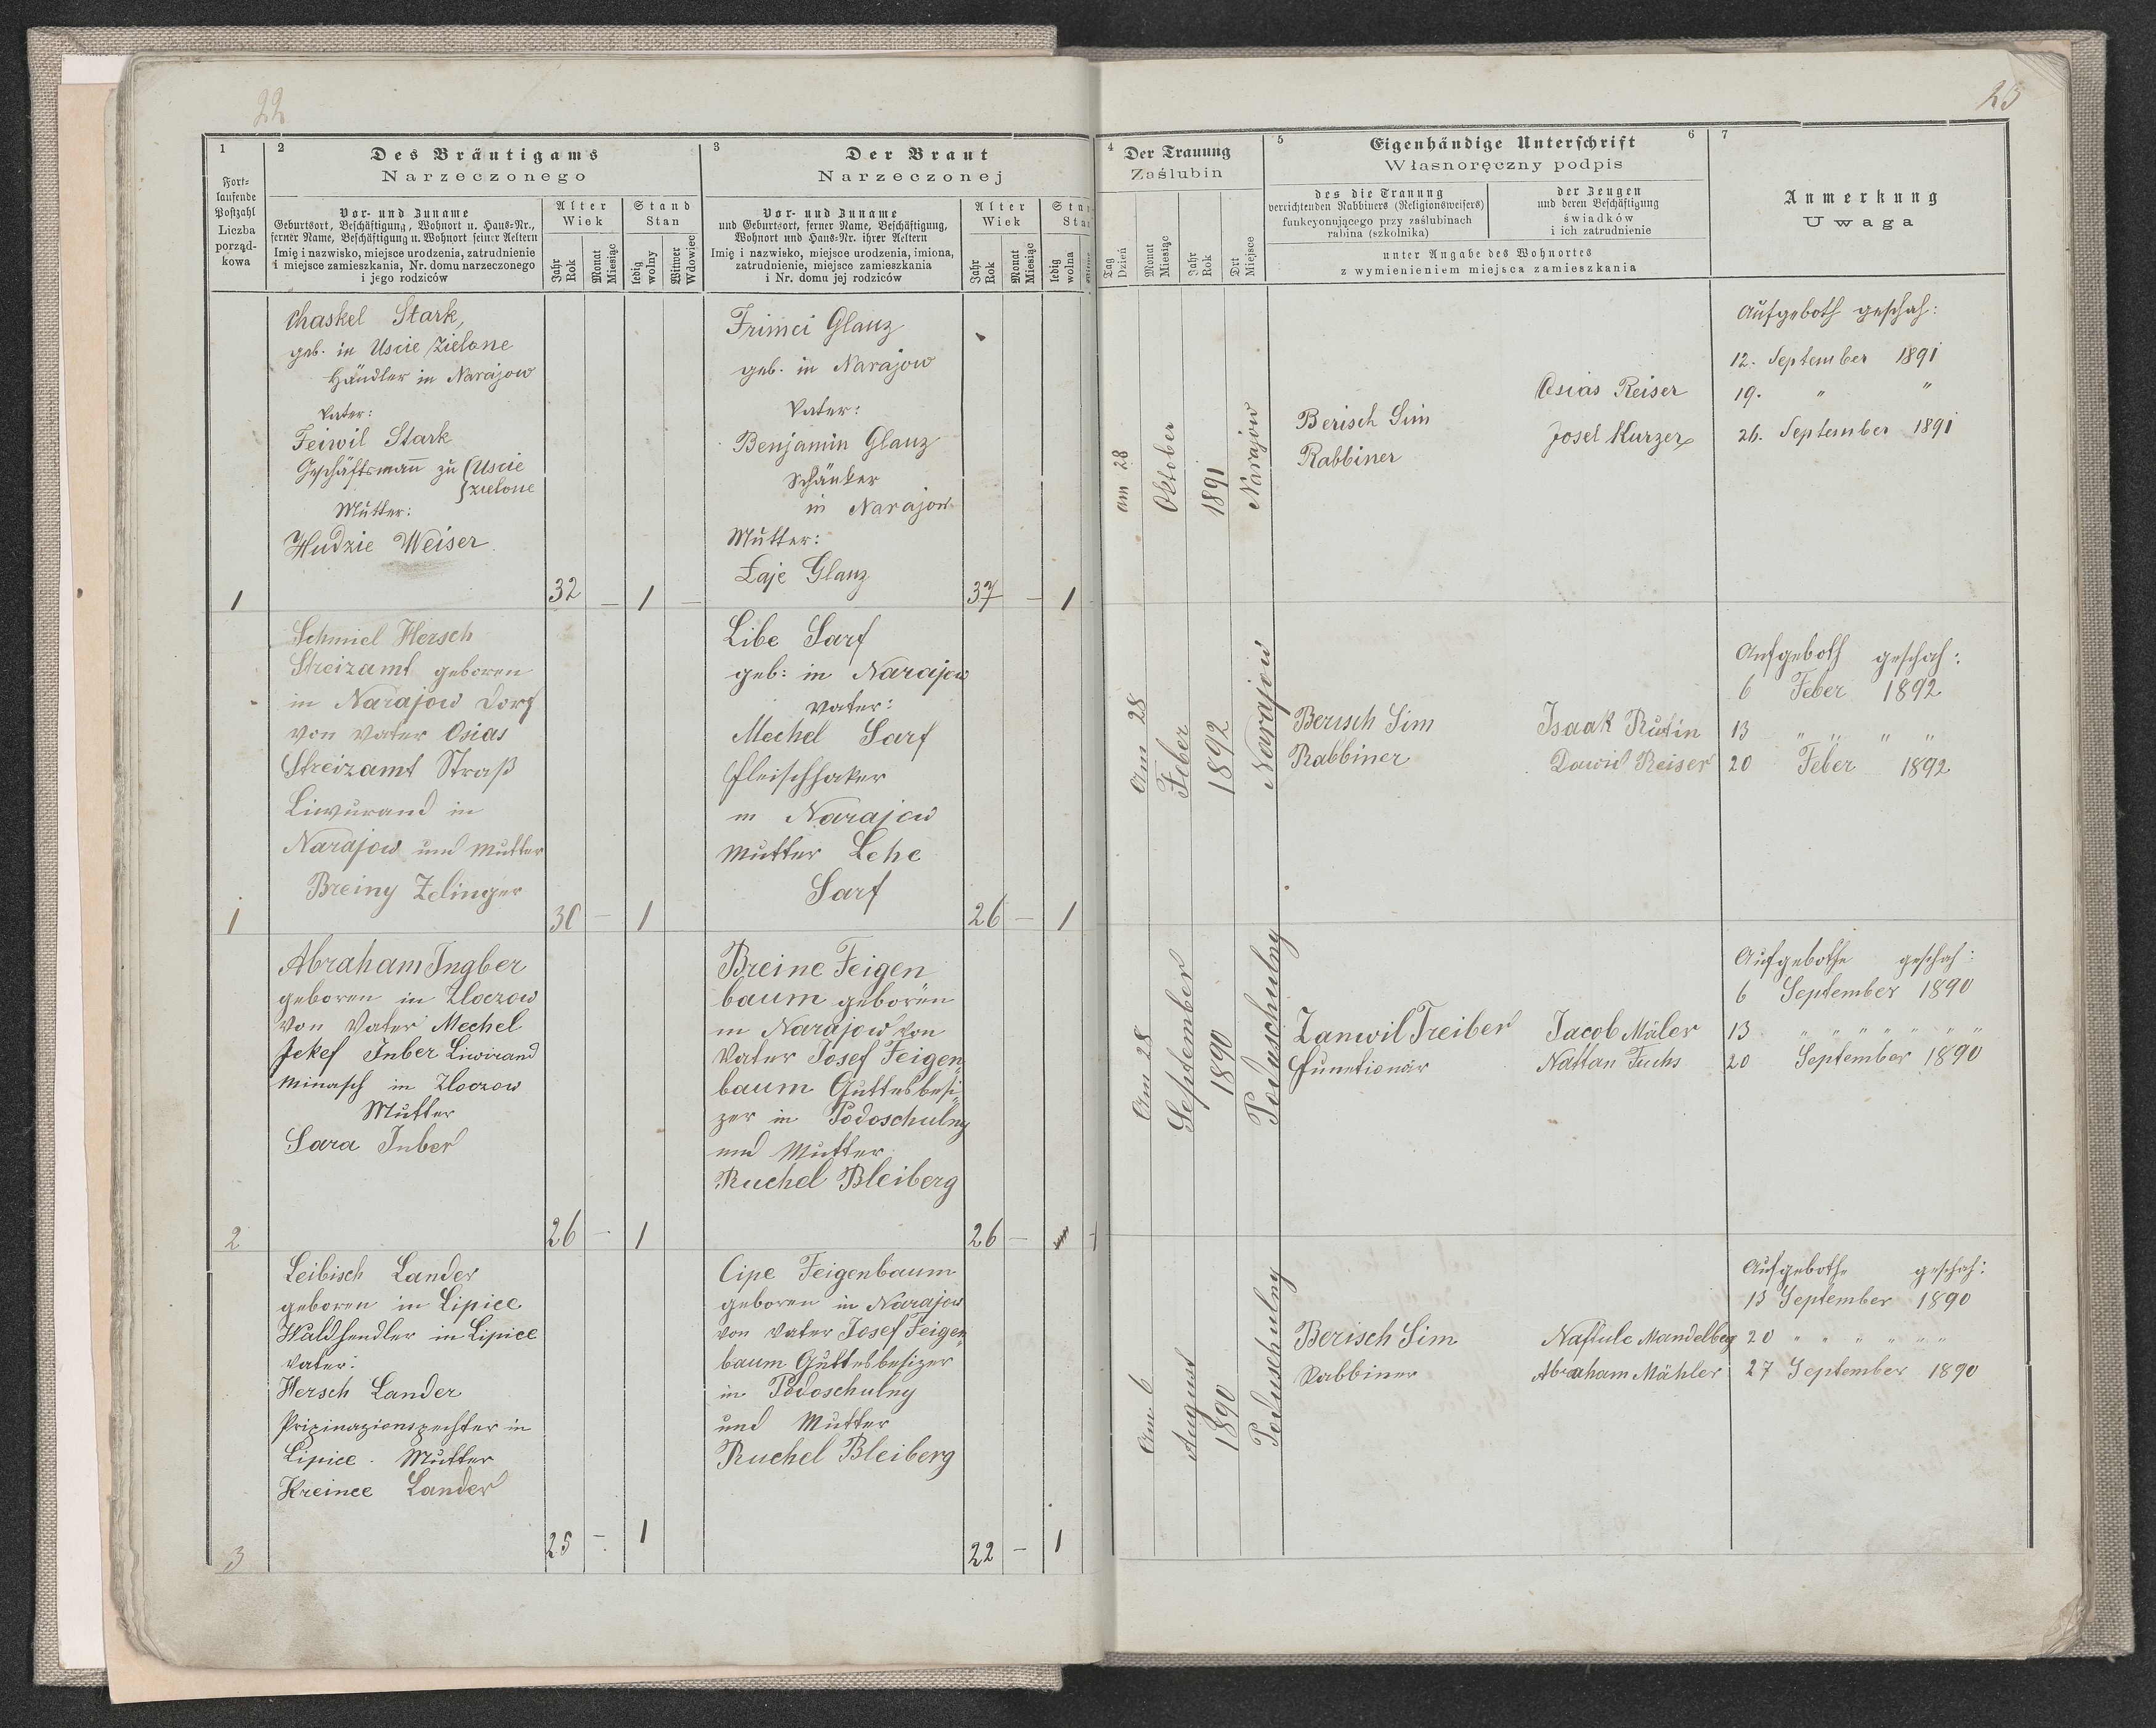 22
23
1
2
Des Bräutigams
Narzeczonego
3
Der Braut
Narzeczonej
4
Der Trauung
Zaślubin
5
Eigenhändige Unterschrift
6
Własnoręczny podpis
7
Anmerkung
Uwaga
Fort-
laufende
Postzahl
Liczba
porząd-
kowa
Vor- und Zuname
Geburtsort, Beschäftigung, Wohnort u. Haus-Nr.,
ferner Name, Beschäftigung u. Wohnort seiner Aeltern
Imię i nazwisko, miejsce urodzenia, zatrudnienie
i miejsce zamieszkania, Nr. domu narzeczonego
i jego rodziców
Alter
Wiek
Jahr
Rok
Monat
Miesiąc
Stand
Stan
ledig
wolny
Witwer
Wdowiec
Vor- und Zuname
und Geburtsort, ferner Name, Beschäftigung,
Wohnort und Haus-Nr. ihrer Aeltern
Imię i nazwisko, miejsce urodzenia, imiona,
zatrudnienie, miejsce zamieszkania
i Nr. domu jej rodziców
Alter
Wiek
Jahr
Rok
Monat
Miesiąc
ledig
wolna
Tag
Dzień
Monat
Miesiąc
Jahr
Rok
Ort
Miejsce
des die Trauung
verrichtenden Rabbiners (Religionsweisers)
funkcyonującego przy zaślubinach
rabina (szkolnika)
der Zeugen
und deren Beschäftigung
świadków
i ich zatrudnienie
unter Angabe des Wohnortes
z wymienieniem miejsca zamieszkania
1
Chaskel Stark,
geb. in Uscie Zielone
Händler in Narajow
Vater:
Feiwil Stark
Geschäftsmann zu (Uscie
zielone
Mutter:
Hudzie Weiser
32 – 1 –
Frimci Glanz
geb. in Narajow
Vater:
Benjamin Glanz
Schänker
in Narajow
Mutter:
Laje Glanz
37 – 1
am 28
Oktober
1891
Narajow
Berisch Sim
Rabbiner
Osias Reiser
Josel Kurzer
Aufgeboth geschah:
12. September 1891
19. " "
26. September 1891
1
Schmiel Hersch
Streizamt geboren
in Narajow Dorf
von Vater Osias
Streizamt Straß
Liwurand in
Narajow und Mutter
Breiny Zelinger
30 – 1
Libe Sarf
geb: in Narajow
Vater:
Mechel Sarf
fleischhaker
in Narajow
Mutter Lehe
Sarf
26 – 1
Am 28
Feber
1892
Narajow
Berisch Sim
Rabbiner
Isaak Rutin
Dawid Reiser
Aufgeboth geschah:
6 Feber 1892
13 " " " "
20 Feber 1892
2
Abraham Ingber
geboren in Zloczow
von Vater Mechel
Jekef Inber Liwirand
Minasch in Zloczow
Mutter
Sara Inber
26 – 1
Breine Feigen
baum geboren
in Narajow von
Vater Josef Feigen
baum Guttesbesi
zer in Podoschulny
und Mutter
Ruchel Bleiberg
26 –
Am 28
September
1890
Poduschulny
Zanwil Treiber
functionär
Jacob Mäler
Nattan Fuchs
Aufgebothe geschah:
6 September 1890
13 " " " " " " "
20 September 1890
3
Leibisch Lander
geboren in Lipice
Waldhendler in Lipice
Vater:
Hersch Lander
Prizinazionspechter in
Lipice. Mutter
Kreince Lander
25 – 1
Cipe Feigenbaum
geboren in Narajow
von Vater Josef Feigen
baum Guttesbesizer
in Podoschulny
und Mutter
Ruchel Bleiberg
22 – 1
Am 6
August
1890
Poduschulny
Berisch Sim
Rabbiner
Naftule Mandelberg
Abraham Mähler
Aufgebothe geschah:
13 September 1890
20 " " " " " "
27 September 1890